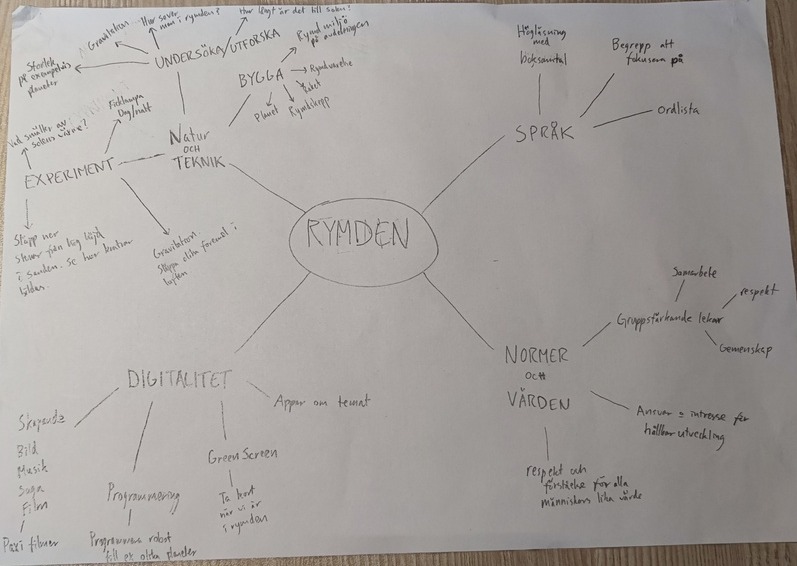 RYMDEN
Natur
OCH
TEKNIK
UNDERSÖKA/UTFORSKA
Storlek
på exempelvis
planeter
Gravitation
Hur sover
man i rymden?
Hur långt är det till solen?
BYGGA
Rymdmiljö
på avdelningen
Rymdvarelse
raket
Rymdskepp
Planet
EXPERIMENT
Vad smälter av
solens värme?
Ficklampa
Dag/natt
Släpp ner
stenar från låg höjd
i sanden. Se hur kratrar
bildas.
Gravitation.
Släppa olika föremål i
luften
SPRÅK
Högläsning
med
boksamtal
Begrepp att
fokusera på
Ordlista
NORMER
OCH
VÄRDEN
Gruppstärkande lekar
Samarbete
respekt
Gemenskap
Ansvar = intresse för
hållbar utveckling
respekt och
förståelse för alla
människors lika värde
DIGITALITET
Skapande
Bild
Musik
Saga
Film
Paxi filmer
Programmering
Programmera robot
till ex olika planeter
Green Screen
Ta kort
när vi är
i rymden
Appar om temat